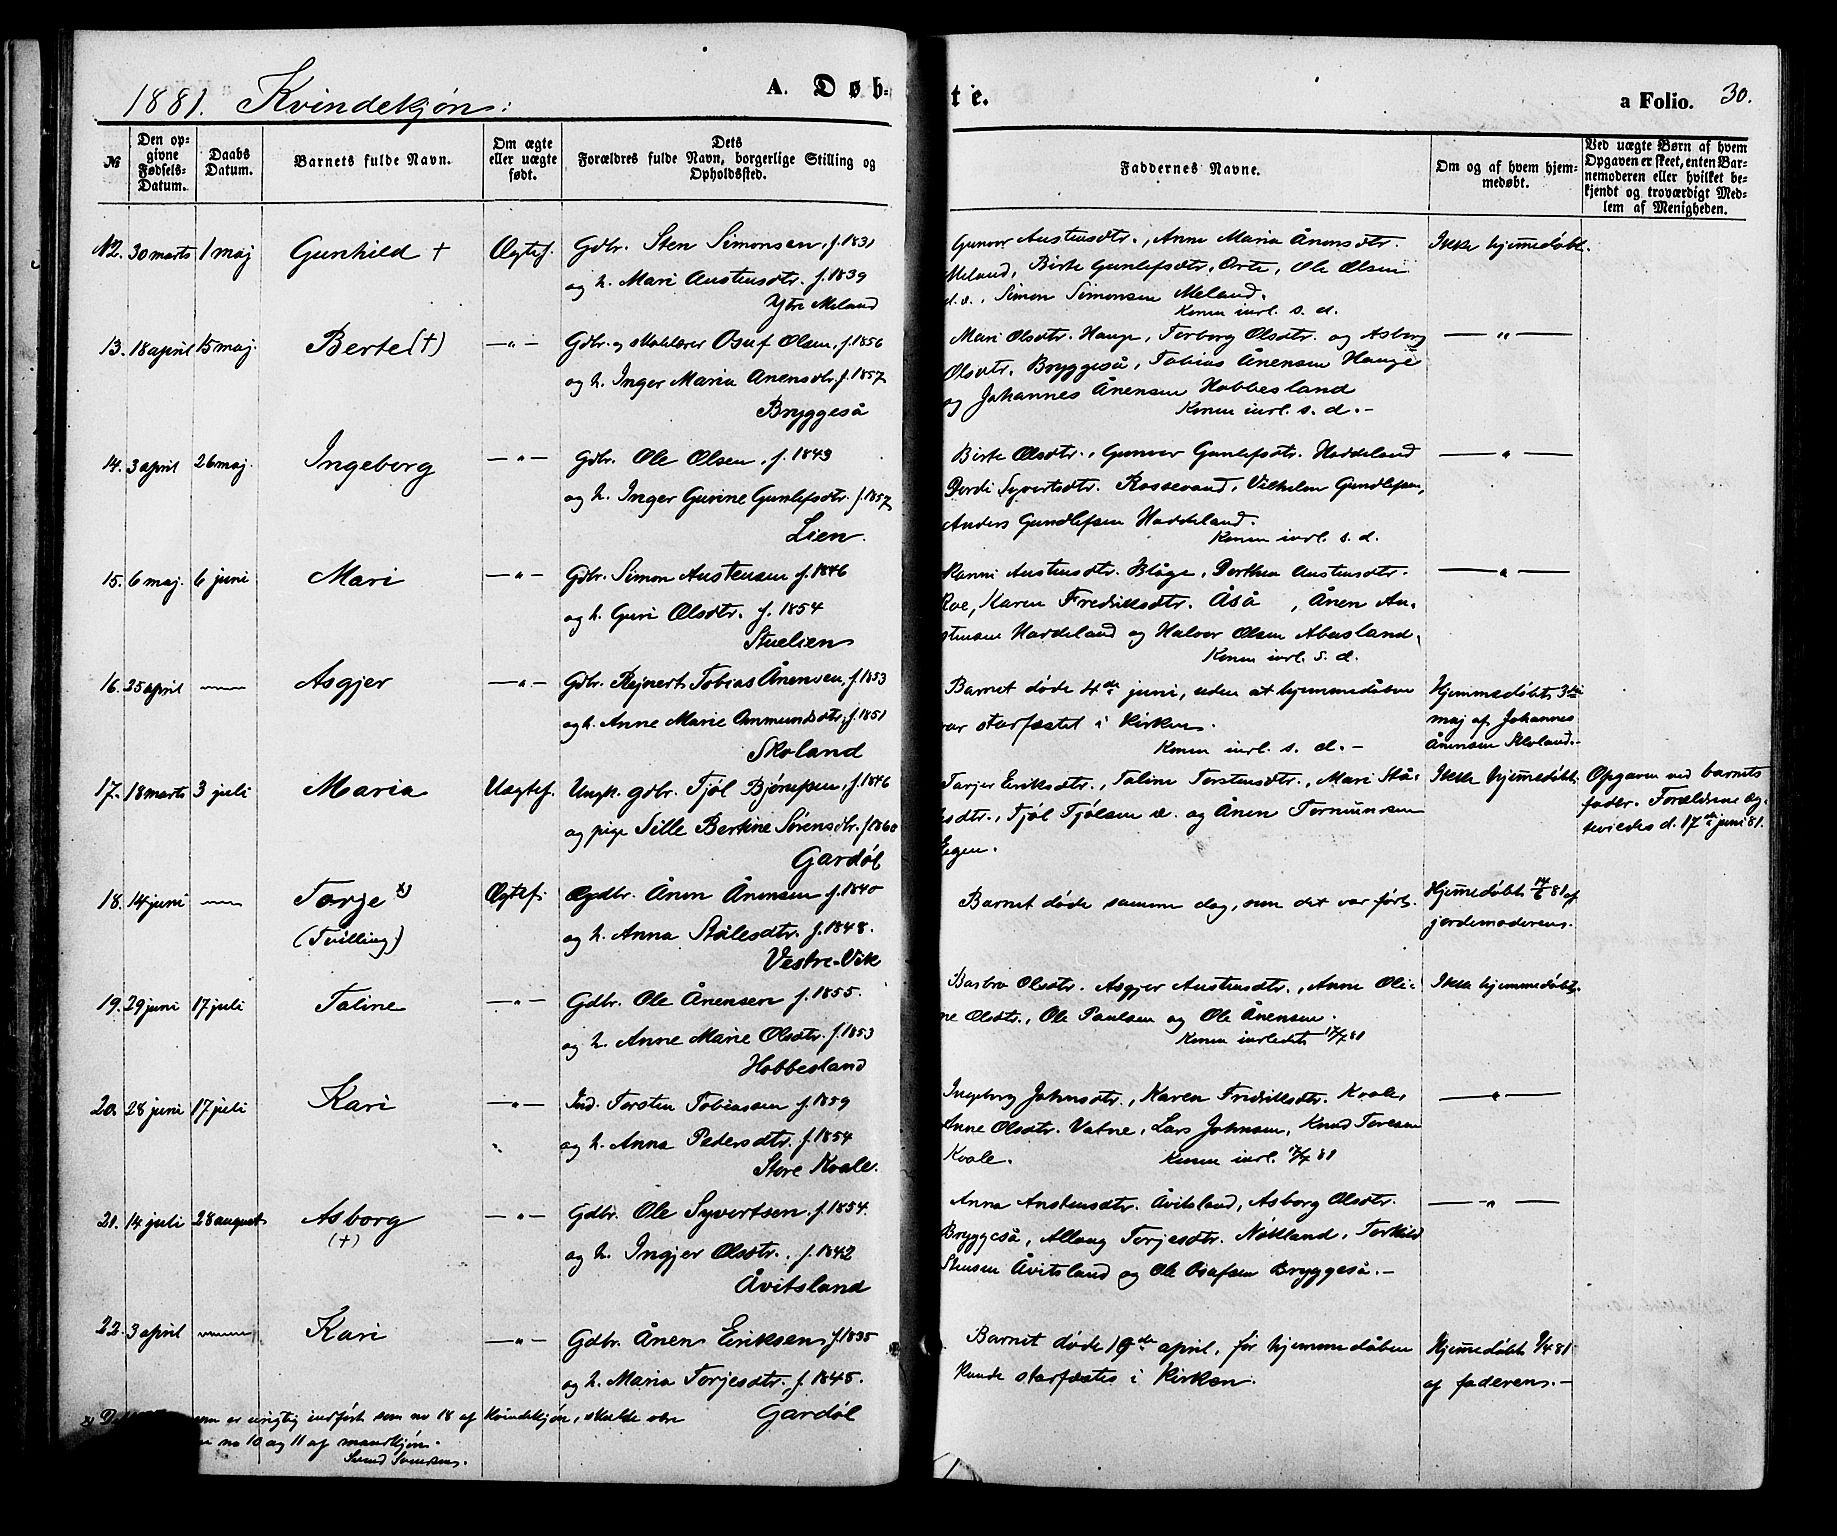 1881. Kvindekjøn:
A. Døb-
te.
a Folio. 30.
№
Den op-
givne
Fødsels-
Datum.
Daabs
Datum.
Barnets fulde Navn.
Om ægte
eller uægte
født.
Dets
Forældres fulde Navn, borgerlige Stilling og
Opholdssted.
Faddernes Navne.
Om og af hvem hjem-
medøbt.
Ved uægte Børn af hvem
Opgaven er skeet, enten Bar-
nemoderen eller hvilket be-
kjendt og troværdigt Med-
lem af Menigheden.
12. 30 marts 1 maj Gunhild + Ægtef. Gdbr. Sten Simonsen, f. 1831
og h. Mari Austensdtr. f. 1839
Ytre Meland
Gunvor Austensdtr., Anne Maria Ånensdtr.
Meland, Birte Gunlefsdtr, Ole Olsen
d.s., Simon Simonsen Meland.
Konen inrl. s. d.
Ikke hjemmedøbt.
13. 18 april 15 maj. Berte (+) —„— Gdbr. og skolelærer Osuf Olsen, f. 1856
og h. Inger Maria Ånensdtr. f. 1857
Bryggeså
Mari Olsdtr. Hauge, Torborg Olsdtr. og Asborg
Olsdtr. Bryggeså, Tobias Ånensen Hauge
og Johannes Ånensen Hobbesland
Konen inrl. s. d. –
—„—
14. 3 april 26 maj. Ingeborg —„— Gdbr. Ole Olsen, f. 1849
og h. Inger Gurine Gunlefsdtr. f. 1857
Lien.
Birte Olsdtr., Gunvor Gunlefsdtr. Haddeland
Dordi Syvertsdtr. Rossevand, Vilhelm Gundlefsen,
Anders Gundlefsen Haddeland.
Konen inrl. s. d.
—„—
15. 6 maj. 6 juni Mari —„— Gdbr. Simon Austensen f. 1846
og h. Guri Olsdtr. f. 1854
Stuelien
Austensdtr. Blåge, Dorthea Austensdtr.
Roe, Karen Fredriksdtr. Åså, Ånen Au-
stensen Haddeland og Halvor Olsen Abusland.
Konen inrl. s. d.
—„—
16. 25 april — Asgjer —„— Gdbr. Rejnert Tobias Ånensen, f. 1853
og h. Anne Marie Ånmundsdtr, f. 1851
Skoland
Barnet døde 4de juni, uden at hjemmedåben
var starfæstet i kirken.
Konen inrl. s. d. –
Hjemmedøbt 3die
maj af Johannes
Ånensen Skoland.–
17. 18 marts 3 juli Maria Uægtef. Ungk. gdbr. Tjøl Bjørufsen, f. 1846
og pige Sille Bertine Sørensdtr. f. 1860
Gardøl
Torjer Eriksdtr., Taline Torstensdtr., Mari Stå-
lesdtr., Tjøl Tjølsen æ. og Ånen Tormundsen
Eigen.
Ikke hjemmedøbt.
Opgaven ved barnets
fader. Forældrene æg-
teviedes d. 17de juni 81.
18. 14 juni — Torje x)
(Tvilling)
Ægtef. Gdbr. Ånen Ånensen f. 1840
og h. Anna Stålesdtr. f. 1848.
Vestre-Vik
Barnet døde samme dag, som det var født.
Hjemmedøbt 14/6 81 af
jordemoderen.
19. 29 juni 17 juli Taline —„— Gdbr. Ole Ånensen f. 1855.
og h. Anne Marie Olsdtr. f. 1853
Hobbesland
Barbro Olsdtr. Asgjer Austensdtr., Anne Oli-
ne Olsdtr., Ole Paulsen og Ole Ånensen.
Konen inrledet 17/7 81
Ikke hjemmedøbt.
20. 28 juni 17 juli Kari —„— Ind. Torsten Tobiassen f. 1859
og h. Anna Pedersdtr. f. 1854
Store Kvale.
Ingeborg Johnsdtr., Karen Fredriksdtr. Kvale,
Anne Olsdtr. Vatne, Lars Johnsen, Knud Toresen
Kvale.
Konen inrl. 17/7 81
—„—
21. 14 juli 28 august Asborg
(+)
—„— Gdbr. Ole Syvertsen f. 1854.
og h. Ingjer Olsdtr., f. 1842
Åvitsland
Anna Austensdtr. Åvitsland, Asborg Olsdtr.
Bryggeså, Allaug Torjesdtr. Nøkland, Torkild
Stensen Åvitsland og Ole Osufsen Bryggeså.–
—„—
22. 3 april — Kari —„— Gdbr. Ånen Eriksen f. 1835
og h. Maria Torjesdtr. f. 1845.
Gardøl
Barnet døde 19de april, før hjemmedåben
kunde starfæstes i kirken.
Hjemmedøbt 9/4 81
af faderen.–
x) som er urigtig indført som no 18 af kvindekjøn, skulde være
no 10 og 11 af mandkjøn.
Svend Svendsen.